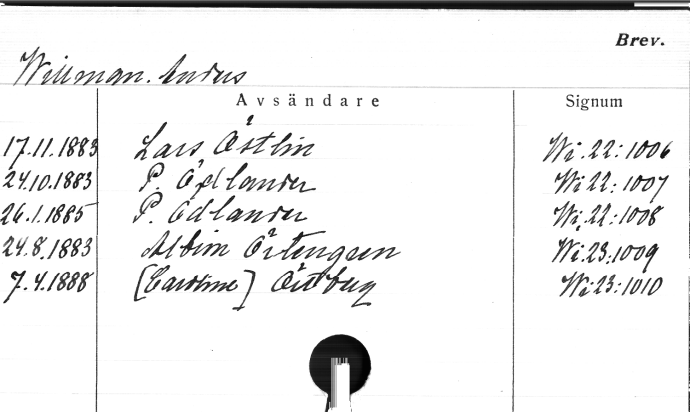 Brev.
Willman. Anders
Avsändare Signum
17.11.1883 Lars Östlin Wi.22:1006
24.10.1883 P. Ödlander Wi.22:1007
26.1.1885 P. Ödlander Wi.22:1008
24.8.1883 Albin Örtengren Wi.23:1009
7.4.1888 [Caroline] Östberg Wi.23:1010